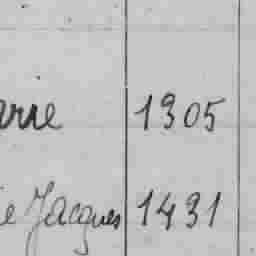 arre 1305
e Jacques 1431